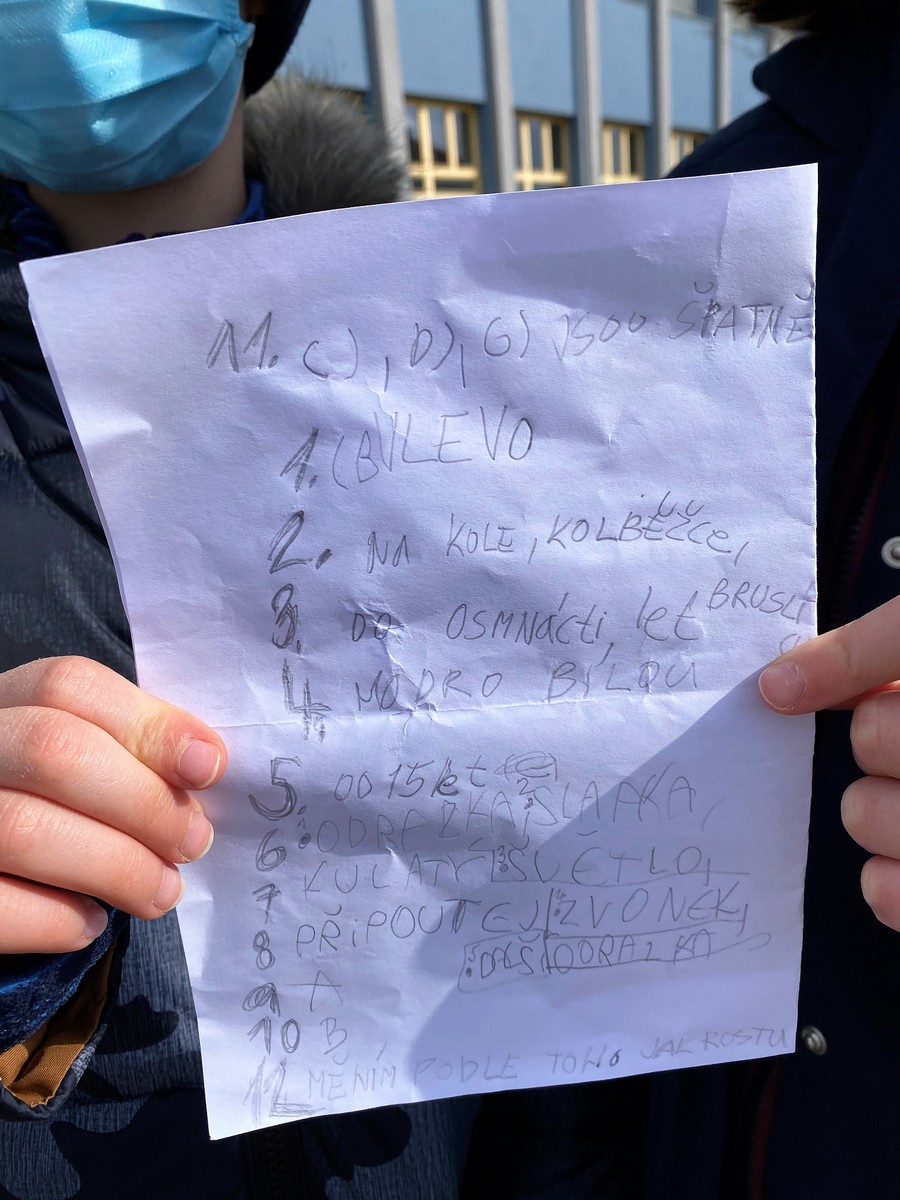 11. C), D), G) JSOU ŠPATNĚ
1. (B) VLEVO
2. NA KOLE, KOLBĚŽČE,
BRUSLI
3. DO OSMNÁCTI let
4. MODRO BÍLOU
5. OD 15 let
6 1: ODRAZKA, 2: ŠLAPKA,
7 KULATÝ 3: SVĚTLO,
8 PŘIPOUTEJ 4: ZVONEK,
5: DALŠÍ ODRAZKA
9 A
10 B
12 MĚNÍM PODLE TOHO JAK ROSTU